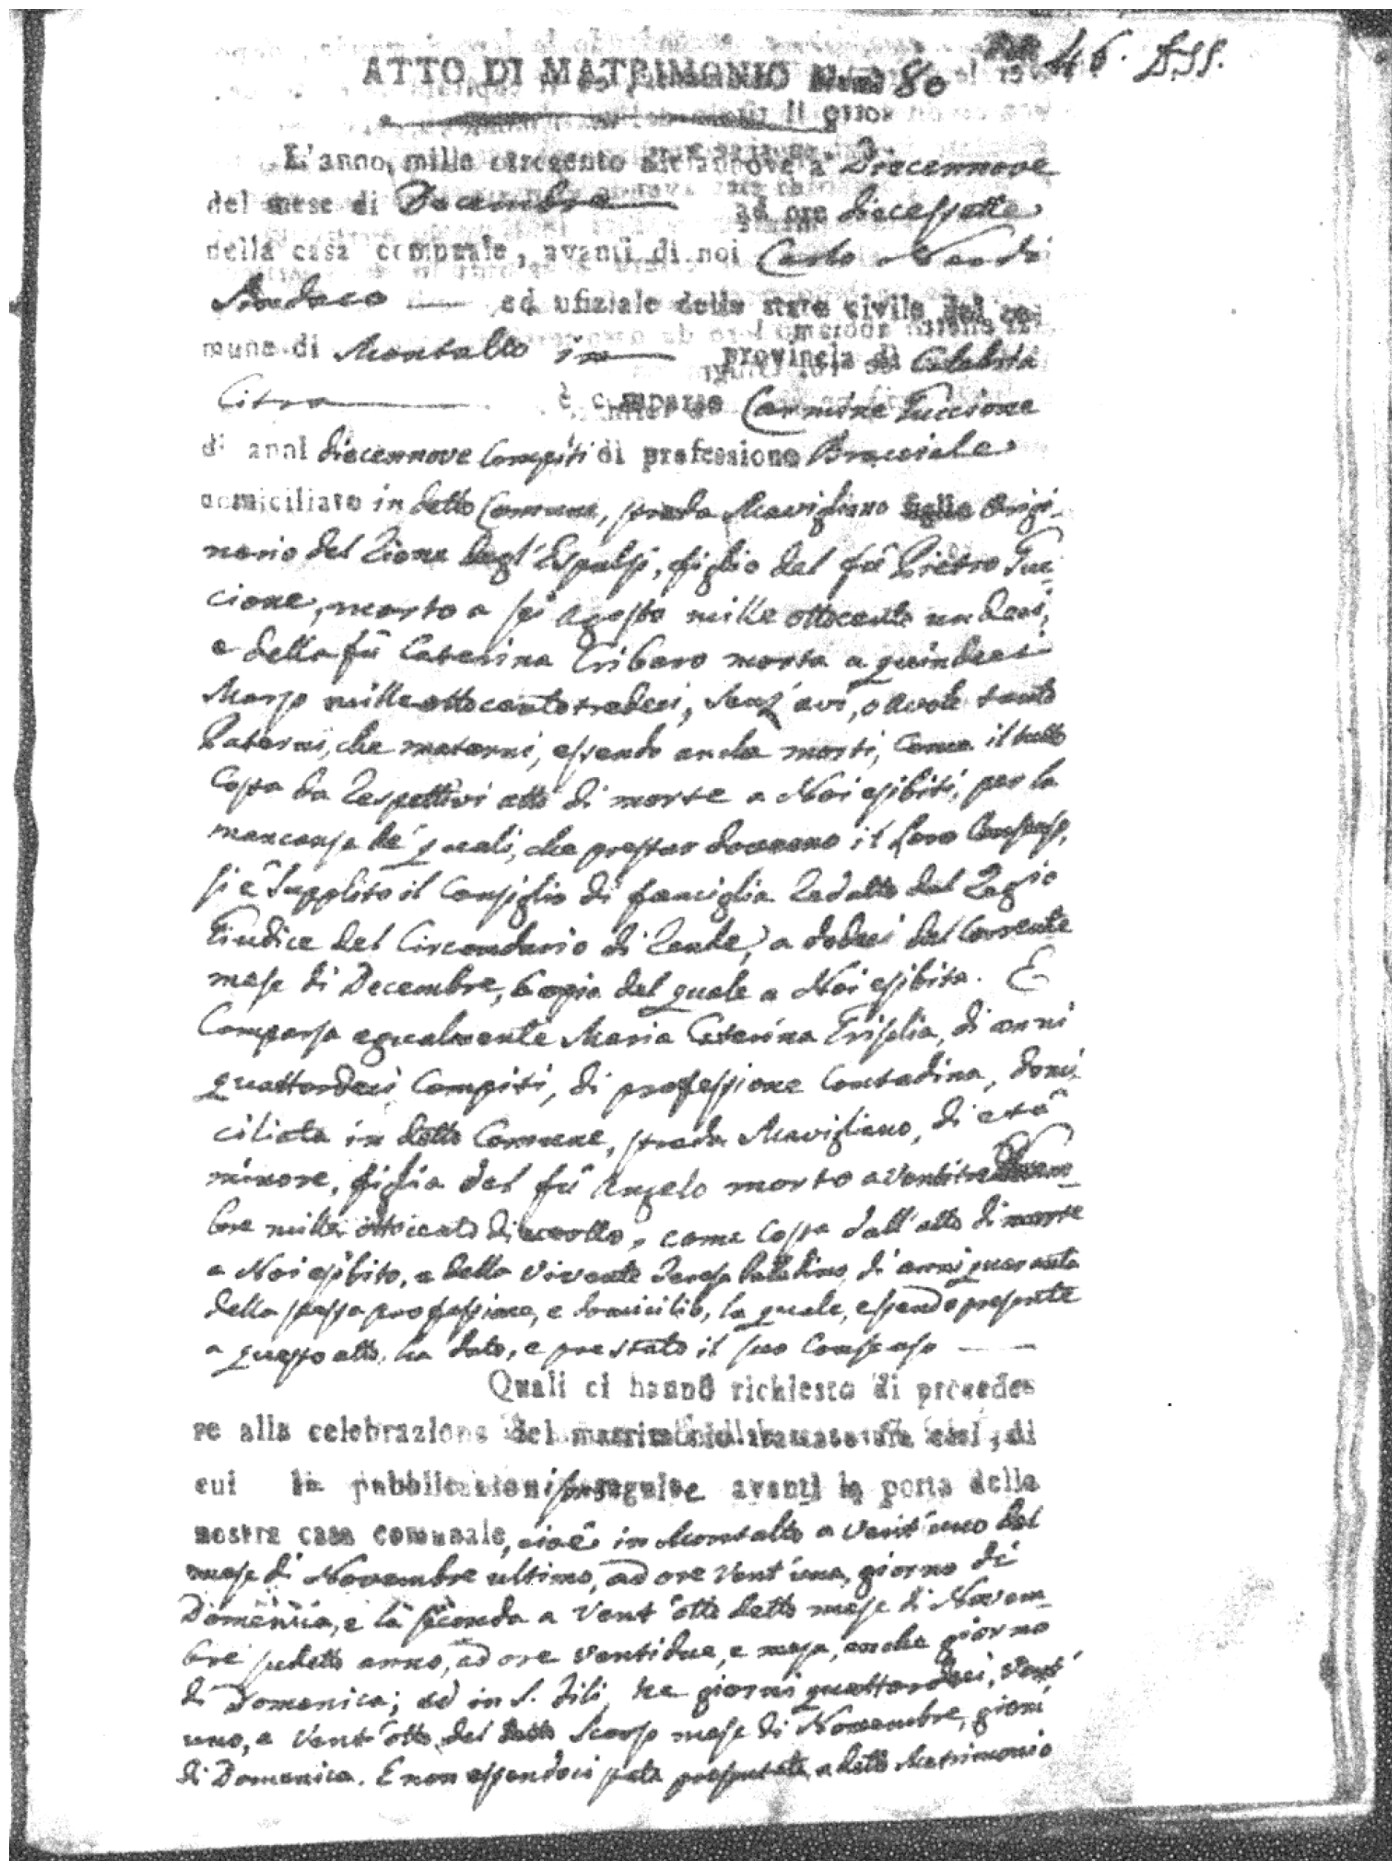 46. 
ATTO DI MATRIMONIO Num. 80
L'anno mille ottocento diciannove a Diecennove
del mese di Decembre ad ore diecessette
della casa comunale, avanti di noi Carlo Nardi
Sindaco ed ufiziale dello stato civile del co-
mune di Montalto in provincia di Calabria
Citra è comparso Carmine Fuccione
di anni diecennove Compiti di professione Bracciale
domiciliato in detto Comune, strada Mavigliano Origi-
nario del Rione degl'Espulsi, figlio del fù Pietro Fuc-
cione, morto a sei Agosto mille ottocento undeci,
e della fù Caterina Tribero morta a quindeci
Marzo mille ottocento tredeci, senz'avi, o avole tanto
Paterni, che materni, essendo anche morti, come il tutto
Costa da respettivi atti di morte a Noi esibiti, per la
mancanza de' quali, che prestar dovevano il loro Consenso,
si è supplito il Consiglio di famiglia redatto dal Regio
Giudice del Circondario di Rende, a dodeci del Corrente
mese di Decembre, Copia del quale a Noi esibita. E
Comparsa egualmente Maria Caterina Trisolia, di anni
quattordeci Compiti, di professione Contadina, domi-
ciliata in detto Comune, strada Mavigliano, di età
minore, figlia del fù Angelo morto a ventitre Novem-
bre mille ottocento dieceotto, come Costa dall'atto di morte
a Noi esibito, e della vivente Teresa Palladino, di anni quaranta
della stessa professione, e domicilio, la quale, essendo presente
a questo atto, ha dato, e prestato il suo Consenso
Quali ci hanno richiesto di procede-
re alla celebrazione del matrimonio tra essi, di
cui le pubblicazioni sono seguite avanti la porta della
nostra casa comunale, cioè in Montalto a vent'uno del
mese di Novembre ultimo, ad ore vent'una, giorno di
Domenica, e la seconda a vent'otto detto mese di Novem-
bre sudetto anno, ad ore ventidue, e mesa, anche giorno
di Domenica; ed in S. Fili, ne giorni quattordeci, vent'
uno, e vent'otto del detto scorso mese di Novembre, giorni
di Domenica. E non essendoci stata presentata a detto Matrimonio